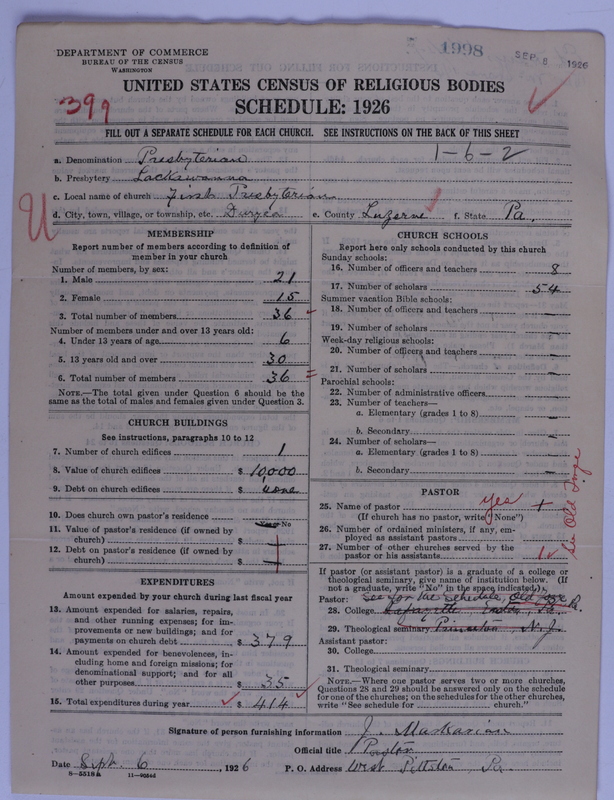 DEPARTMENT OF COMMERCE
BUREAU OF THE CENSUS
WASHINGTON
1998
SEP 8 1926
UNITED STATES CENSUS OF RELIGIOUS BODIES
399
SCHEDULE: 1926
FILL OUT A SEPARATE SCHEDULE FOR EACH CHURCH. SEE INSTRUCTIONS ON THE BACK OF THIS SHEET
a. Denomination Presbyterian 1-6-2
b. Presbytery Lackawanna
c. Local name of church First Presbyterian
d. City, town, village, or township, etc. Duryea e. County Luzerne f. State Pa.
MEMBERSHIP
Report number of members according to definition of
member in your church
Number of members, by sex:
1. Male 21
2. Female 15
3. Total number of members 36
Number of members under and over 13 years old:
4. Under 13 years of age 6
5. 13 years old and over 30
6. Total number of members 36
NOTE.—The total given under Question 6 should be
same as the total of males and females given under Question 3.
CHURCH BUILDINGS
See instructions, paragraphs 10 to 12
7. Number of church edifices 1
8. Value of church edifices $ 10,000
9. Debt on church edifices $ none
10. Does church own pastor's residence Yes or No
11. Value of pastor's residence (if owned by
church) $ —
12. Debt on pastor's residence (if owned by
church) $ —
EXPENDITURES
Amount expended by your church during last fiscal year
13. Amount expended for salaries, repairs,
and other running expenses; for im-
provements or new buildings; and for
payments on church debt $ 379
14. Amount expended for benevolences, in-
cluding home and foreign missions; for
denominational support; and for all
other purposes $ 35
15. Total expenditures during year $ 414
CHURCH SCHOOLS
Report here only schools conducted by this church
Sunday schools:
16. Number of officers and teachers 8
17. Number of scholars 54
Summer vacation Bible schools:
18. Number of officers and teachers —
19. Number of scholars —
Week-day religious schools:
20. Number of officers and teachers —
21. Number of scholars —
Parochial schools:
22. Number of administrative officers —
23. Number of teachers—
a. Elementary (grades 1 to 8) —
b. Secondary —
24. Number of scholars—
a. Elementary (grades 1 to 8) —
b. Secondary —
PASTOR
25. Name of pastor yes +
(If church has no pastor, write "None")
26. Number of ordained ministers, if any, em-
ployed as assistant pastors
27. Number of other churches served by the
pastor or his assistants 1
See Old Forge
If pastor (or assistant pastor) is a graduate of a college or
theological seminary, give name of institution below. (If
not a graduate, write "No" in the space indicated.)
Pastor: See for the Schedule, Old Forge Pa.
28. College Lafayette, Easton, Pa.
29. Theological seminary Princeton, N.J.
Assistant pastor:
30. College
31. Theological seminary
NOTE.—Where one pastor serves two or more churches,
Questions 28 and 29 should be answered only on the schedule
for one of the churches; on the schedules for the other churches,
write "See schedule for church."
Signature of person furnishing information J.
Official title Pastor
Date Sept. 6, 1926 P. O. Address West Pittston, Pa.
8—5518a